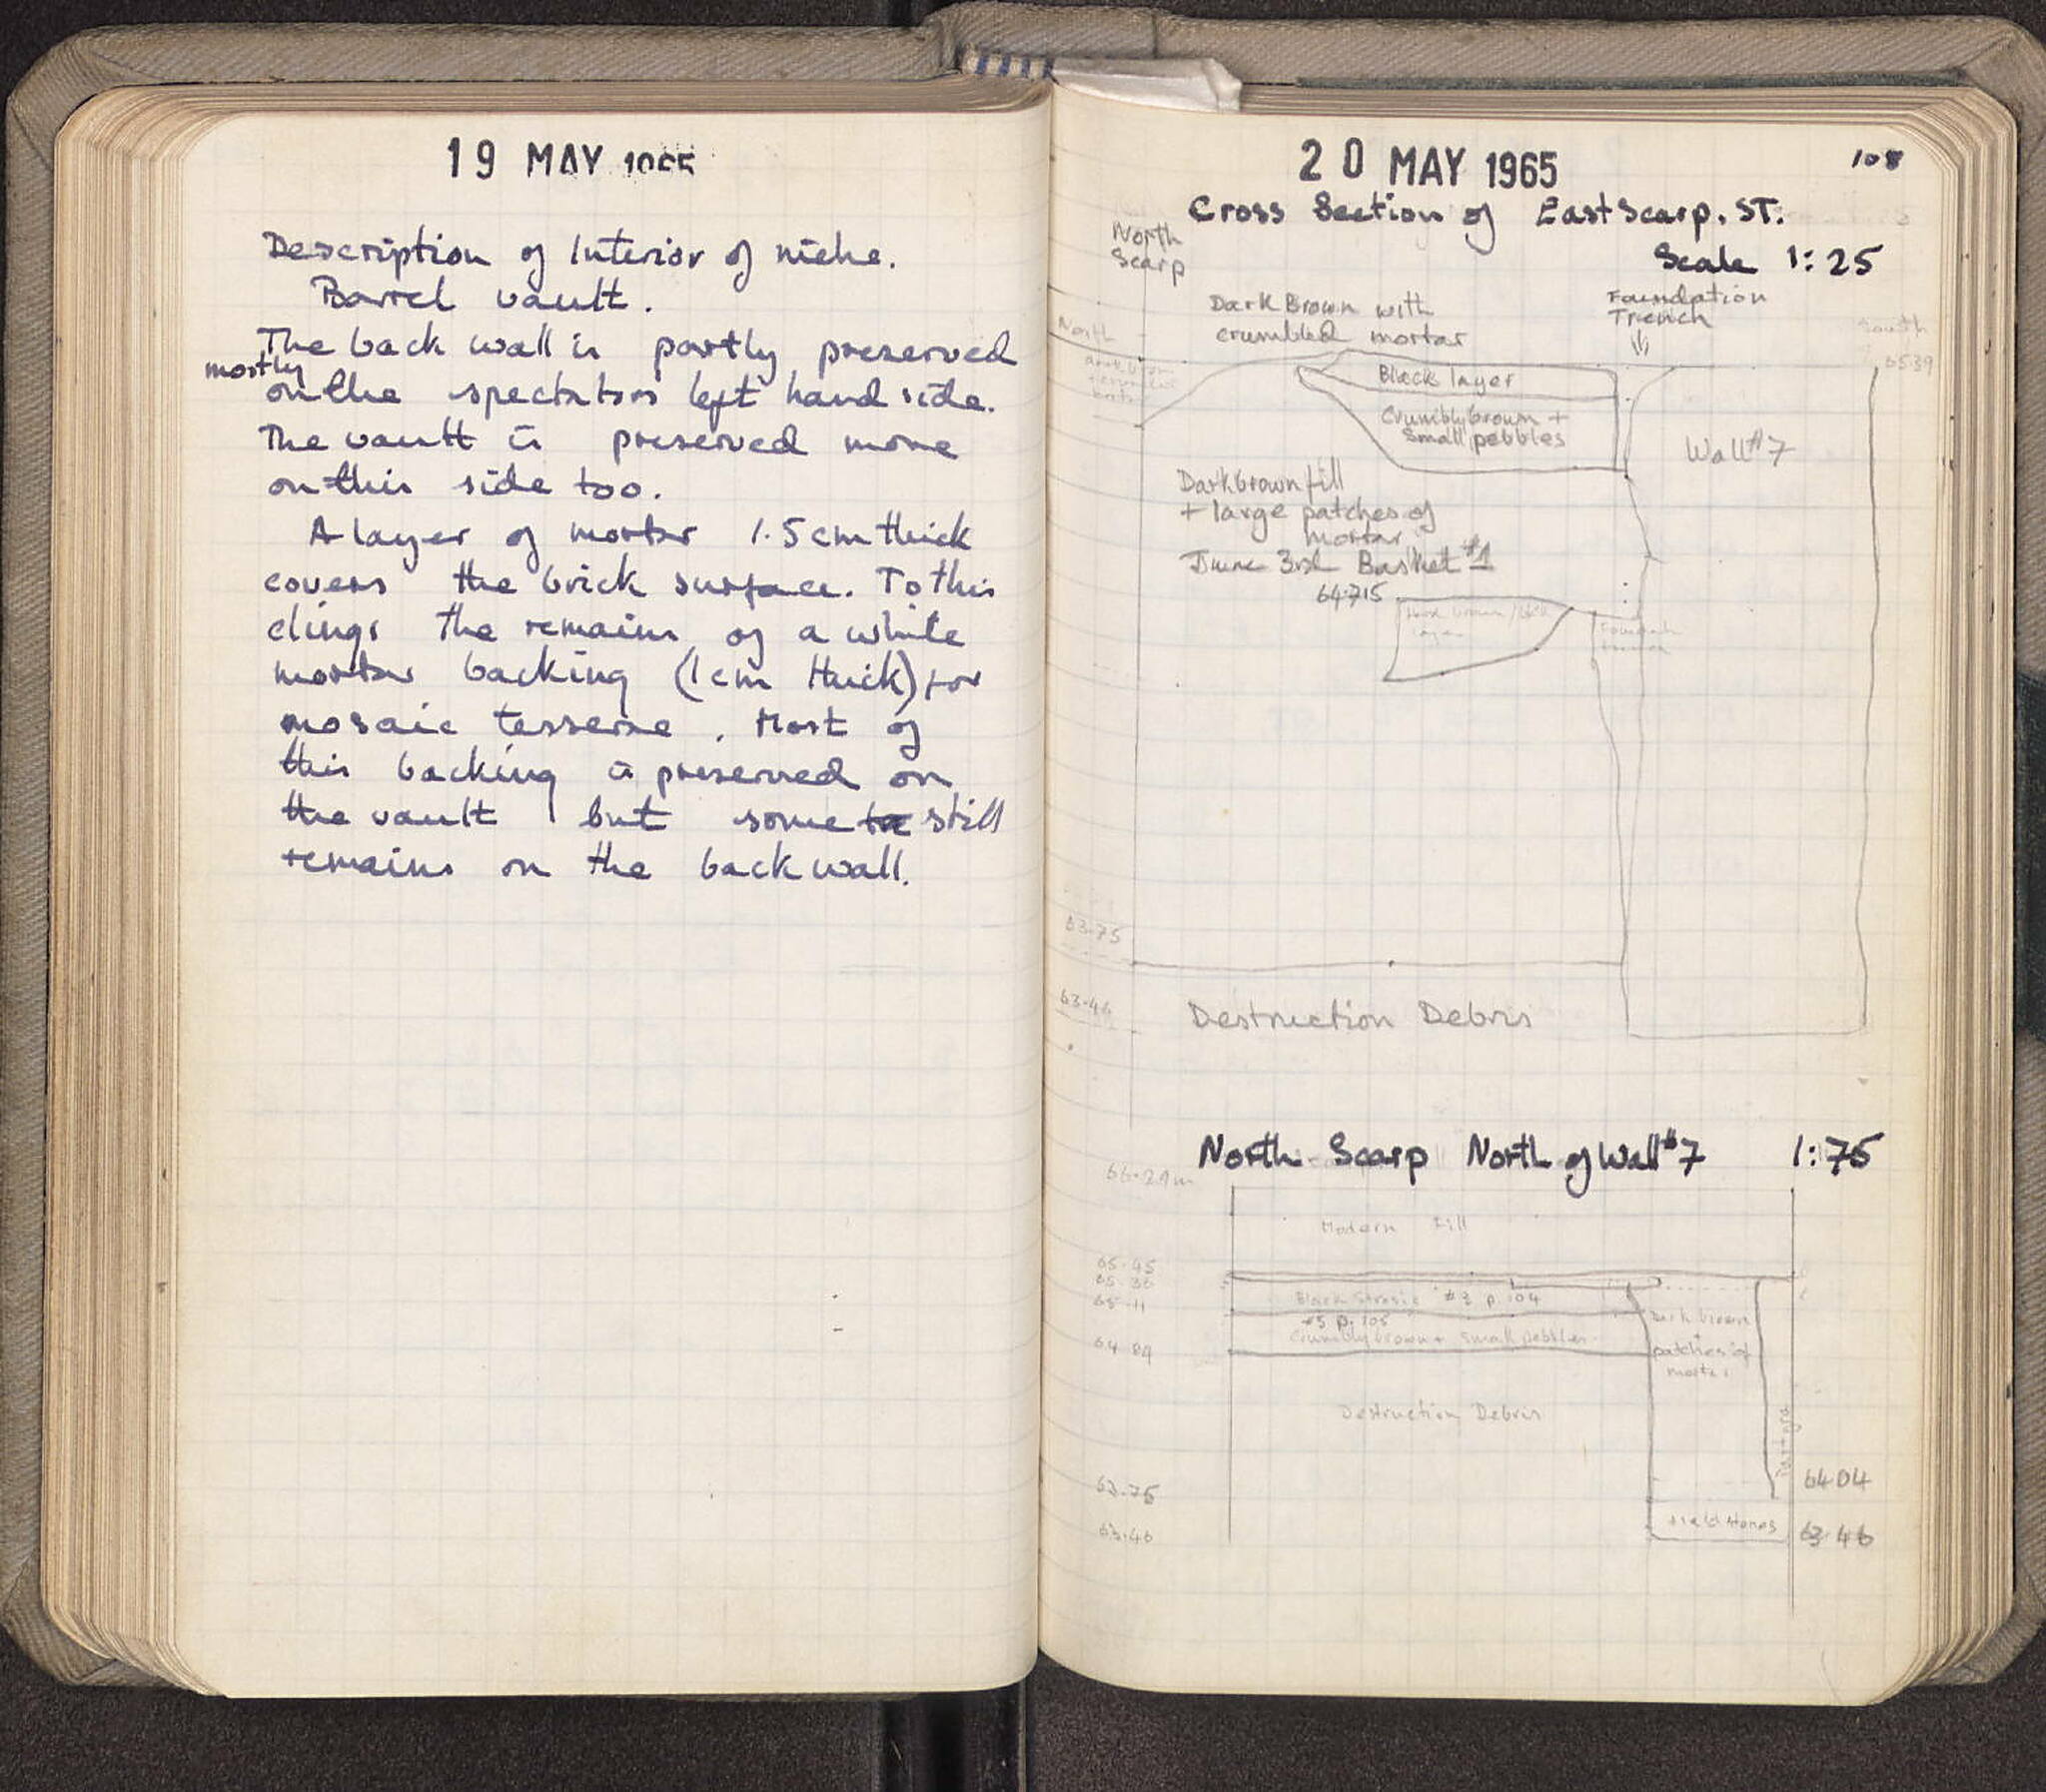 19 MAY 1965
Description of Interior of niche.
Barrel vault.
The back wall is partly preserved
mostly
on the spectators left hand side.
The vault is preserved more
on this side too.
A layer of mortar 1.5cm thick
covers the brick surface. To this
clings the remains of a white
mortar backing (1cm thick) for
mosaic tesserae. Most of
this backing is preserved on
the vault but some still
remains on the back wall.
20 MAY 1965
108
Cross Section of East Scarp. ST.
Scale 1:25
North
Scarp
Dark Brown with
crumbled mortar
Foundation
Trench
North
South
65.39
Black layer
Crumbly brown +
Small pebbles
Wall #7
Dark brown fill
+ large patches of
mortar
June 3rd Basket #1
64.715
layer
63.75
63.46
Destruction Debris
North Scarp North of Wall #7 1:75
66.29m
Modern Fill
65.45
65.11
Black Strosis #3 p. 104
#5 p. 105
Crumbly brown + small pebbles
64.84
Dark brown
+
patches of
mortar
Destruction Debris
64.04
63.75
Field stones
63.46
63.46